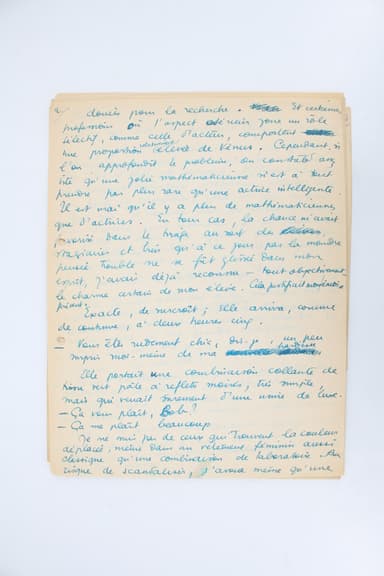 2/ douées pour la recherche. Et certaines
professions où l'aspect extérieur joue un rôle
sélectif, comme celle d'acteur, comportent
une proportion élevée de Vénus. Cependant, si
l'on approfondit le problème, on constate
vite qu'une jolie mathématicienne n'est à tout
prendre pas plus rare qu'une actrice intelligente.
Il est vrai qu'il y a plus de mathématiciennes
que d'actrices. En tout cas, la chance m'avait
favorisé dans le tirage au sort des
stagiaires et bien qu'à ce jour pas la moindre
pensée trouble ne se fût glissée dans mon
esprit, j'avais déjà reconnu - tout objectivement -
le charme certain de mon élève. Cela justifiait
Exacte, de surcroît ; Elle arriva, comme
de coutume, à deux heures cinq.
- Vous êtes rudement chic, dis-je, un peu
surpris moi-même de ma hardiesse
Elle portait une combinaison collante de
vert pâle à reflets moirés, très simple,
mais qui venait sûrement d'une usine de luxe.
- Ça vous plaît, Bob ?
- Ça me plaît beaucoup
Je ne suis pas de ceux qui trouvent la couleur
déplacée, même dans un vêtement féminin aussi
classique qu'une combinaison de laboratoire. Au
risque de scandaliser, j'avoue même qu'une